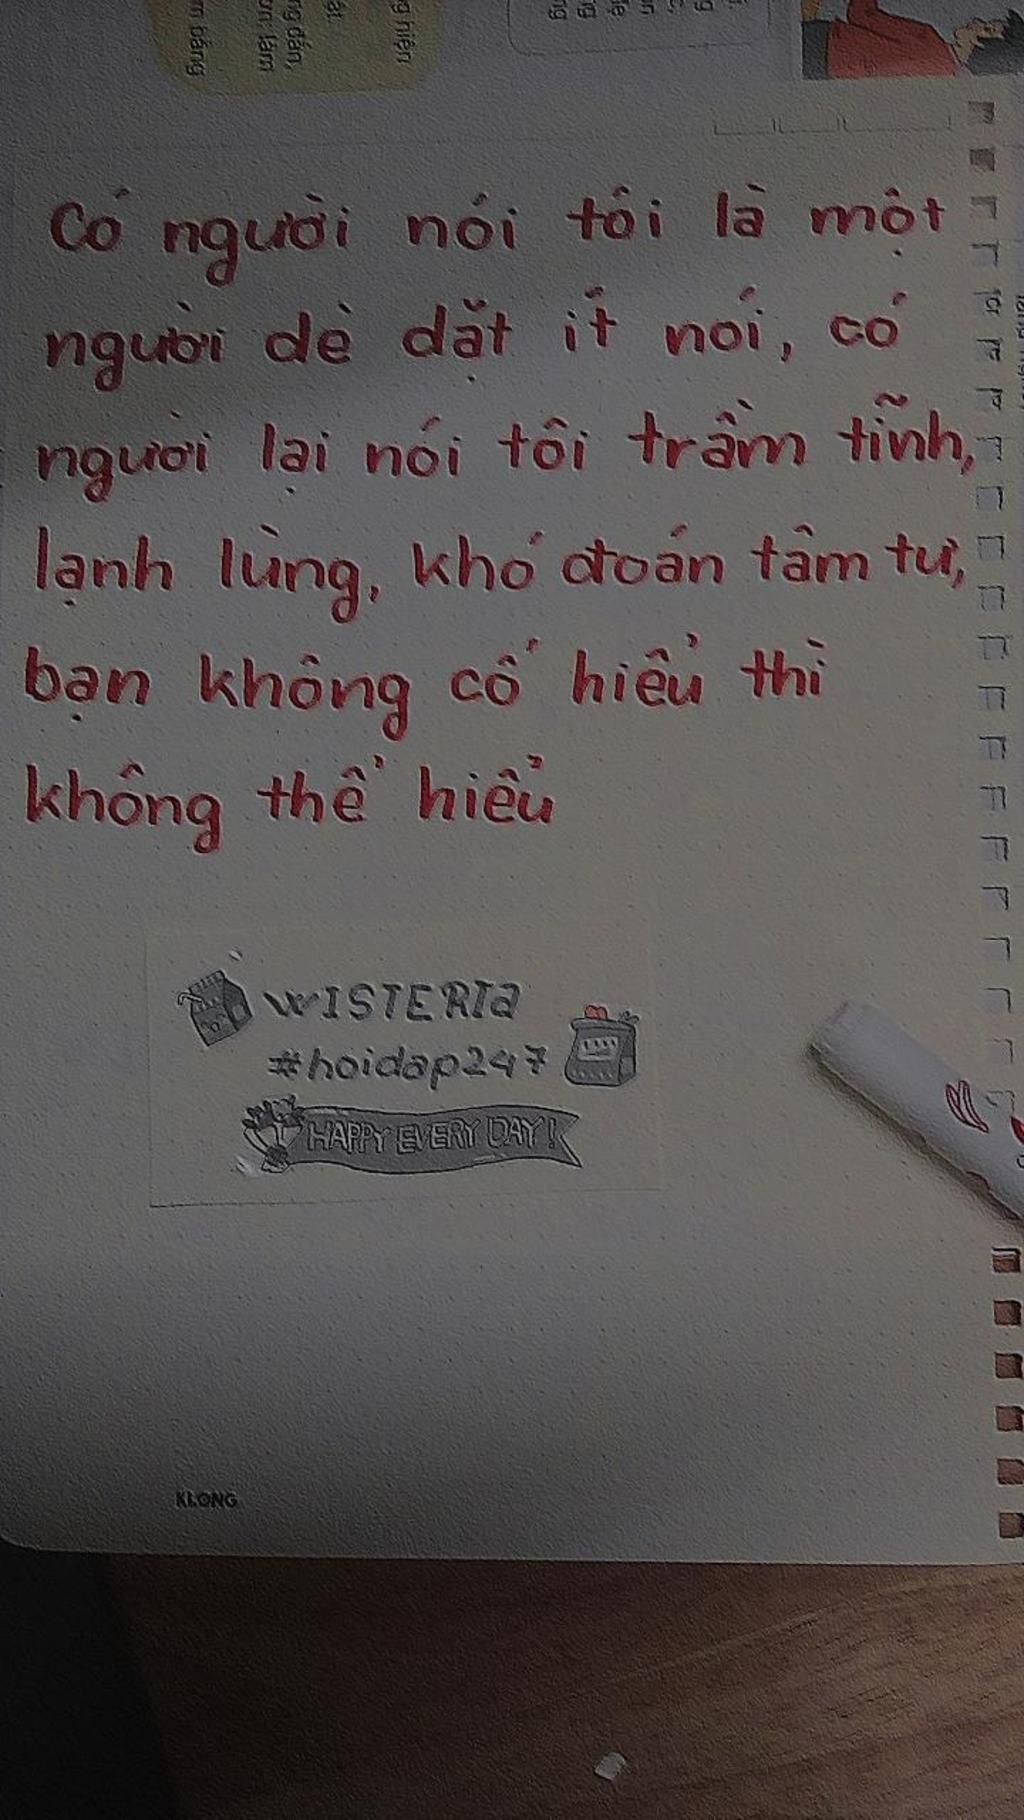 Có người nói tôi là một
người dè dặt ít nói, có
người lại nói tôi trầm tĩnh,
lạnh lùng, khó đoán tâm tư,
bạn không cố hiểu thì
không thể hiểu
WISTERIa
#hoidap247
HAPPY EVERY DAY!
KLONG